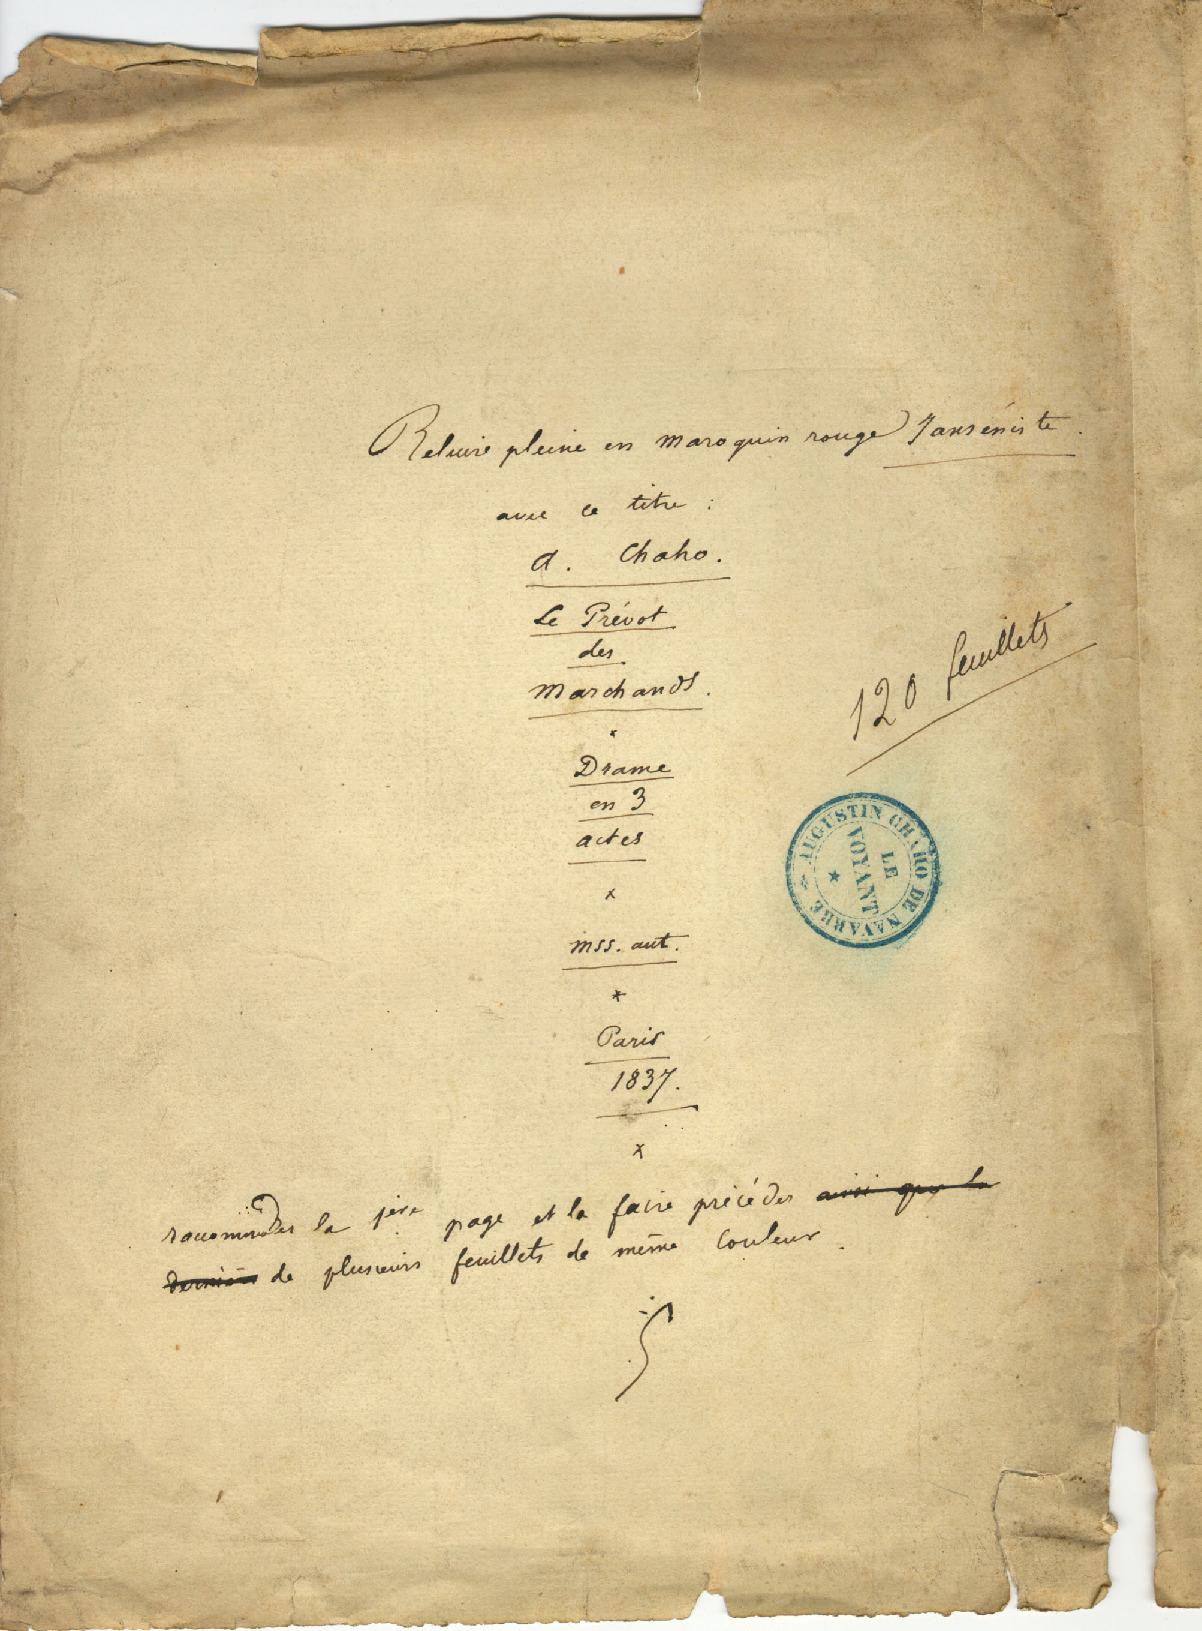 Reliure pleine en maroquin rouge Janséniste.
avec ce titre :
A. Chaho.
Le Prévot
des
Marchands.
Drame
en 3
actes
x
mss. aut.
x
Paris
1837.
x
120 feuillets
AUGUSTIN CHAHO DE NAVARRE
LE
VOYANT
la 1ère page et la faire précéder ainsi que la
dernière de plusieurs feuillets de même couleur.